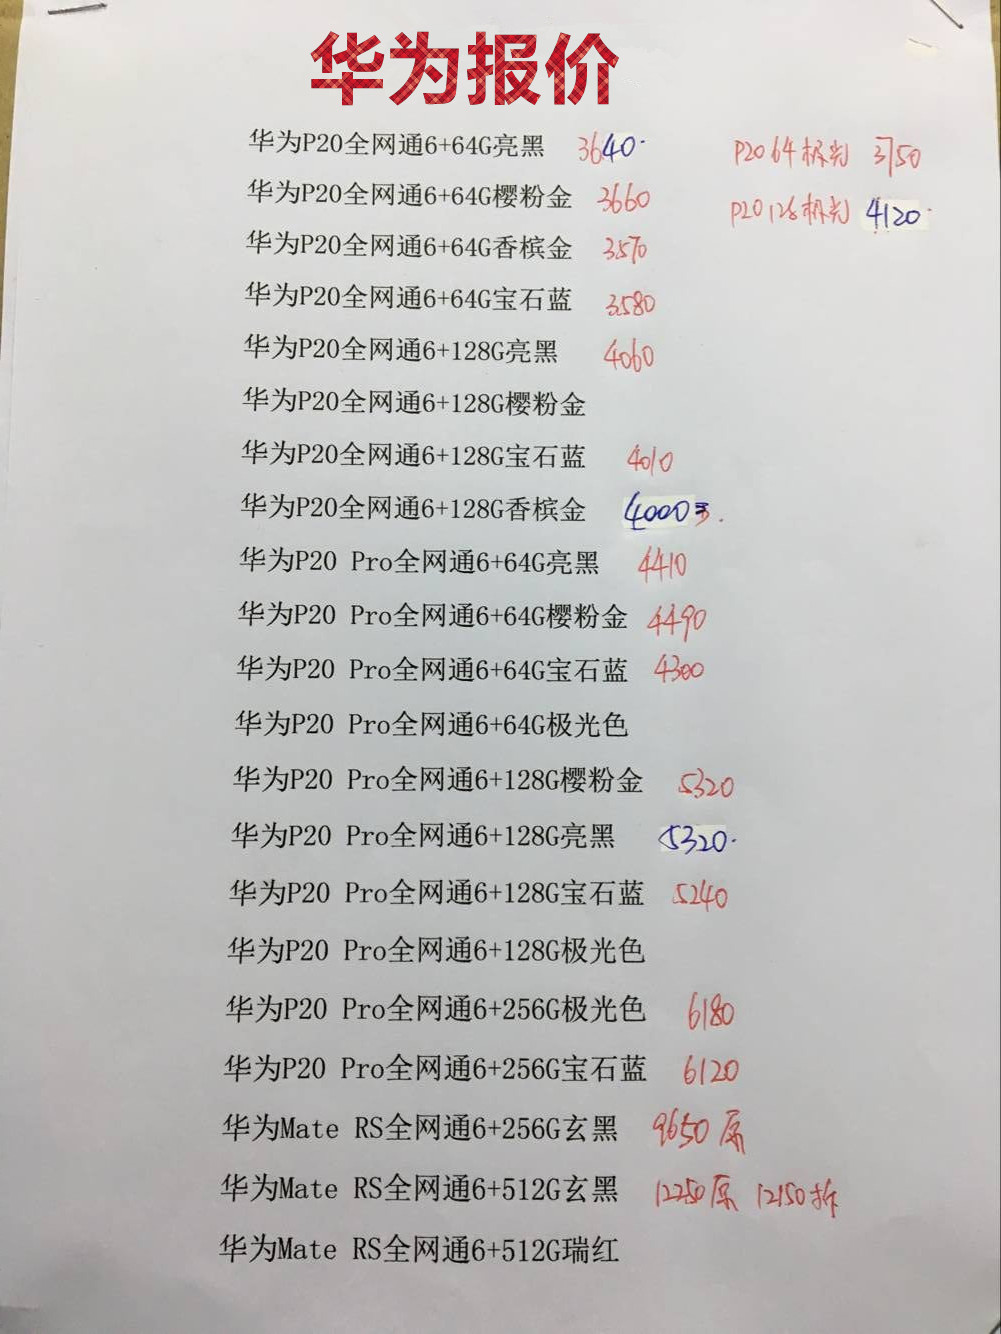 华为报价
华为P20全网通6+64G亮黑 3640. P20 64极光 3750
华为P20全网通6+64G樱粉金 3660 P20 128极光 4120.
华为P20全网通6+64G香槟金 3570
华为P20全网通6+64G宝石蓝 3580
华为P20全网通6+128G亮黑 4060
华为P20全网通6+128G樱粉金
华为P20全网通6+128G宝石蓝 4010
华为P20全网通6+128G香槟金 4000
华为P20 Pro全网通6+64G亮黑 4410
华为P20 Pro全网通6+64G樱粉金 4490
华为P20 Pro全网通6+64G宝石蓝 4300
华为P20 Pro全网通6+64G极光色
华为P20 Pro全网通6+128G樱粉金 5320
华为P20 Pro全网通6+128G亮黑 5320.
华为P20 Pro全网通6+128G宝石蓝 5240
华为P20 Pro全网通6+128G极光色
华为P20 Pro全网通6+256G极光色 6180
华为P20 Pro全网通6+256G宝石蓝 6120
华为Mate RS全网通6+256G玄黑 9650原
华为Mate RS全网通6+512G玄黑 12250原 12150拆
华为Mate RS全网通6+512G瑞红